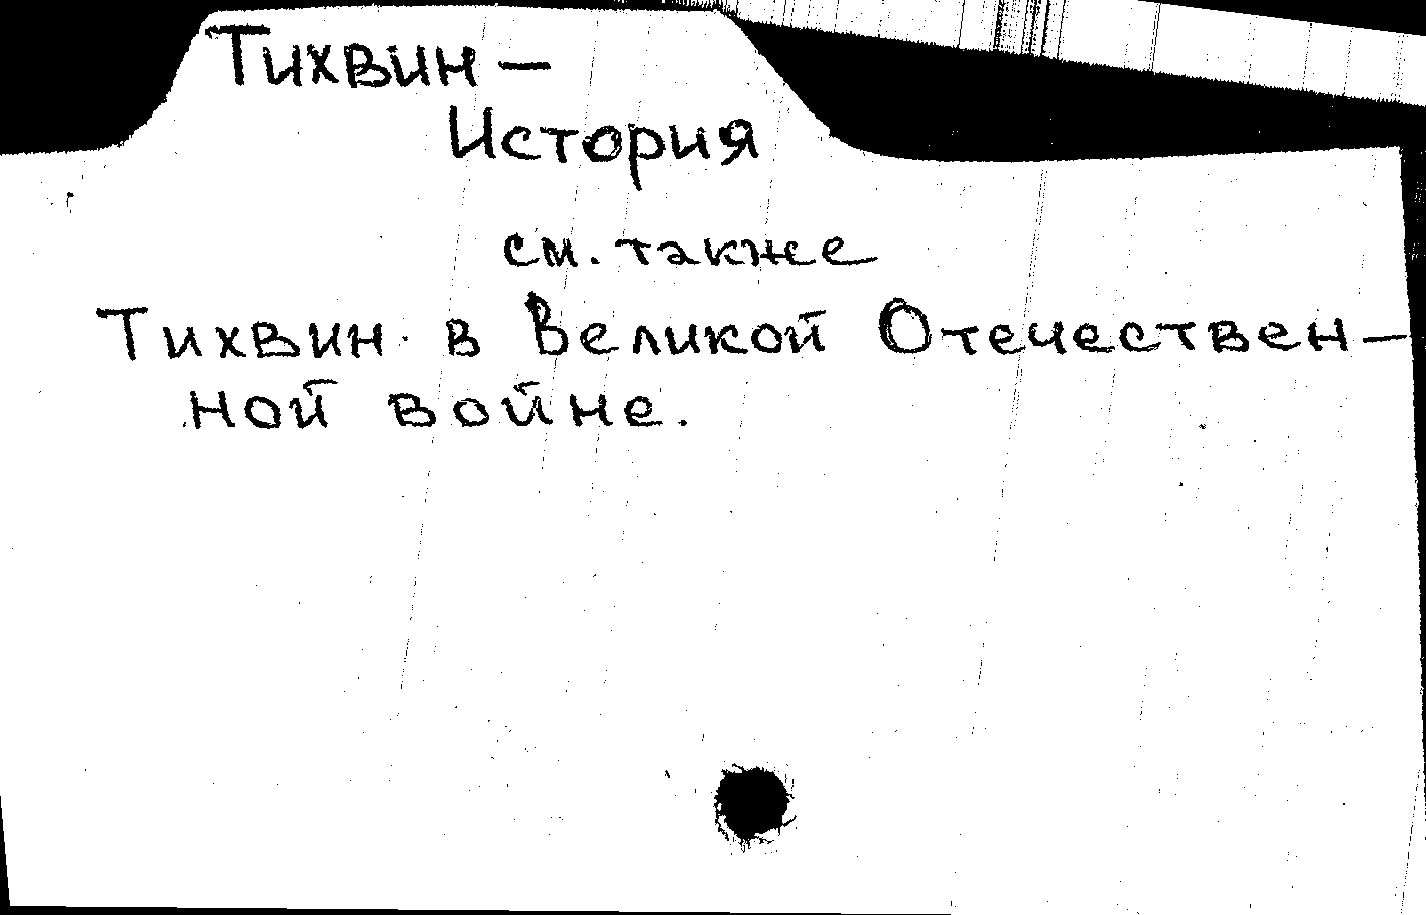 Тихвин —
История
см. также
Тихвин в Великой Отечествен-
ной войне.